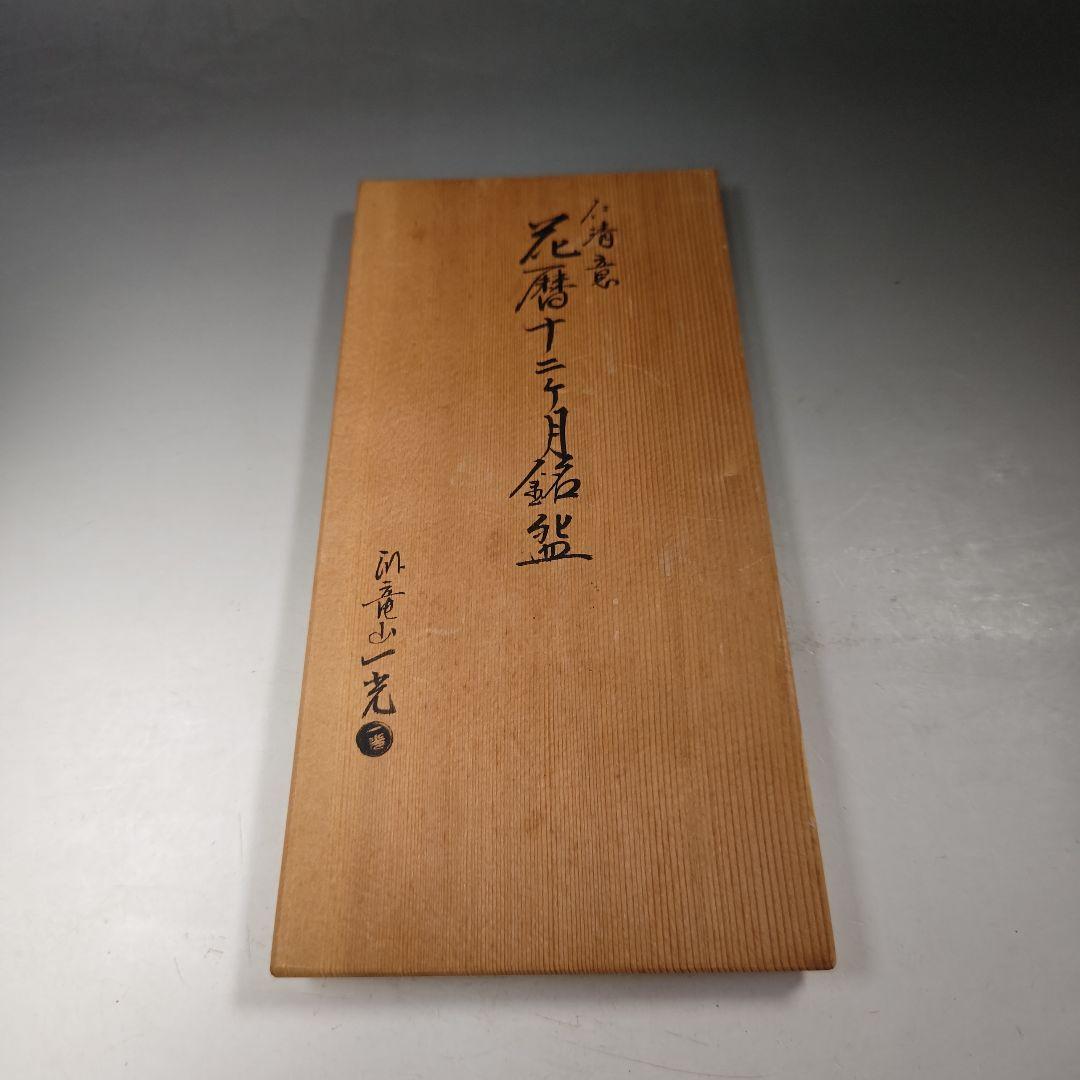 仁清意
花暦十二ケ月銘盌
臥竜山一光